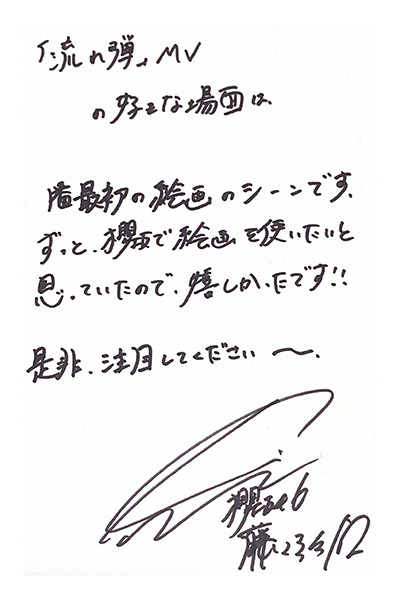 「流れ弾」MV
の好きな場面は、
最初の絵画のシーンです。
ずっと、櫻坂で絵画を使いたいと
思っていたので、嬉しかったです!!
是非、注目してください〜。
櫻坂46